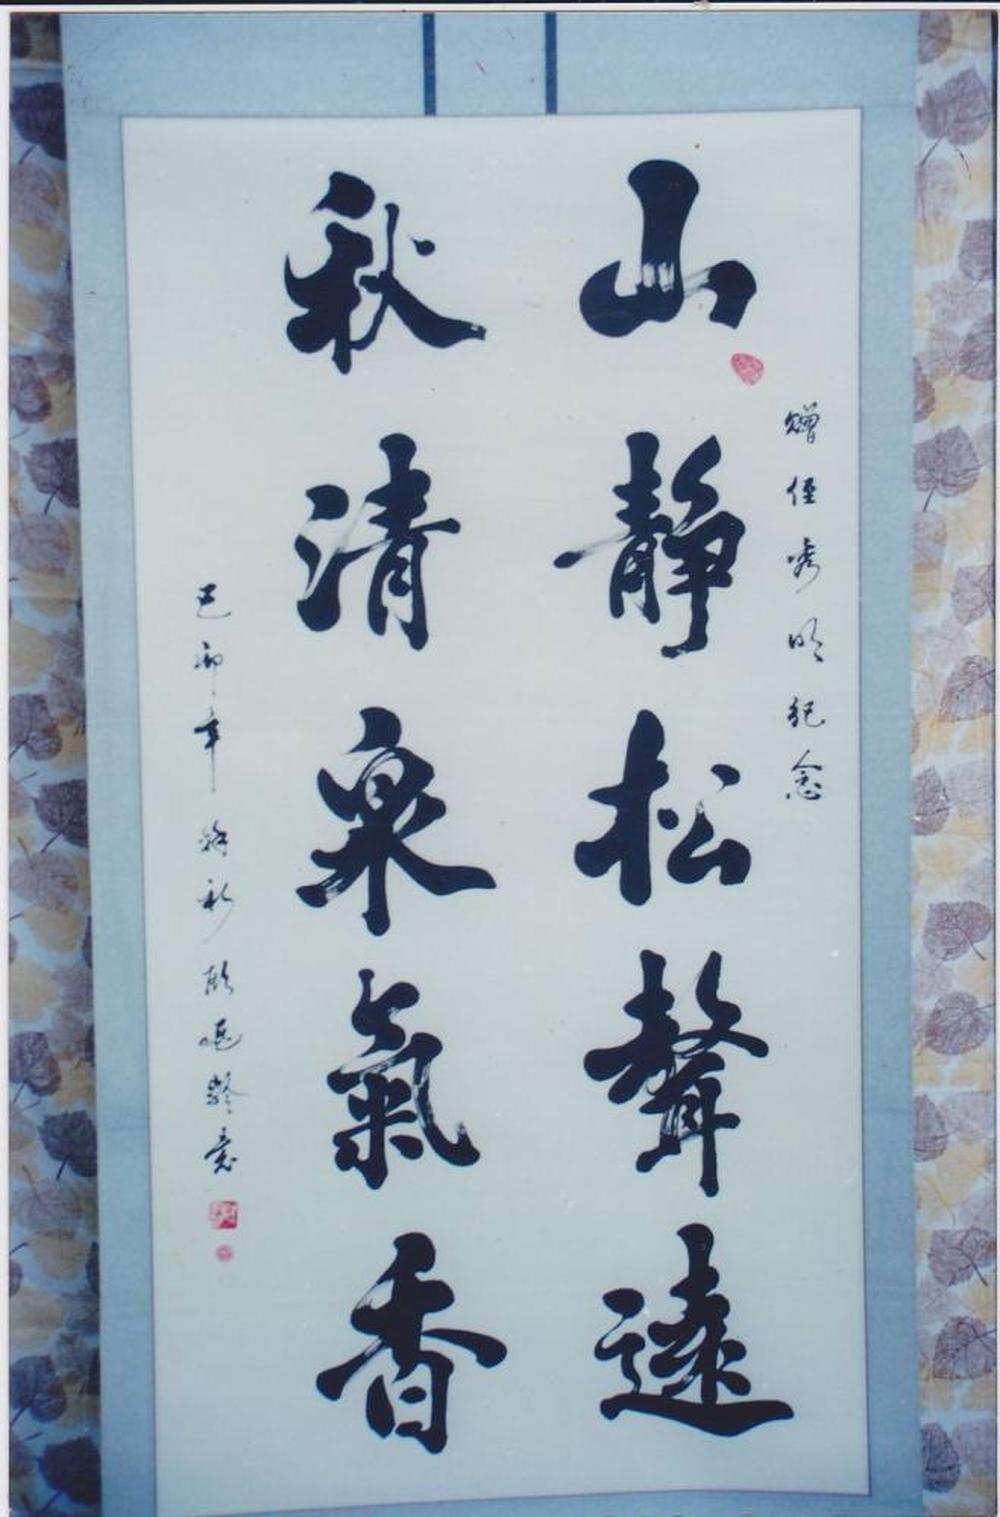 贈侄秀明紀念
山靜松聲遠
秋清泉氣香
己卯年